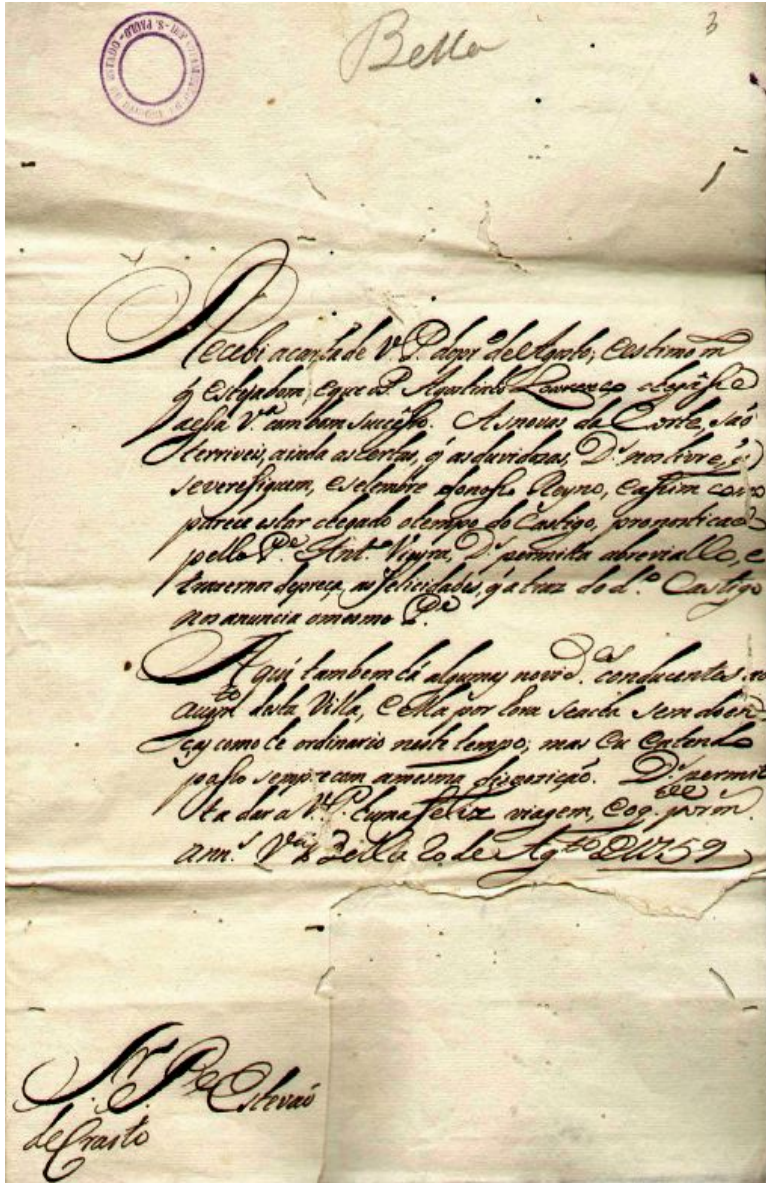 3
Bella
ARCHIVO DO ESTADO - S. PAULO
Recebi a carta de V. P. do pr.º de Agosto, e estimo m
q̃ esteja bom, e que o P. Agostinho Lourenço chegasse
a essa V.ª com bom sucesso. As novas da Corte, são
terriveis, ainda as certas, q̃ as duvidozas, D.s nos livre, q̃
se verefiquem, e se lembre do nosso Reyno, e assim como
parece estar chegado o tempo do Castigo, pronosticado
pello P.e Ant.º Vieyra, D.s permita abreviallo, e
trazernos depreça, as felicidades, q̃ atraz do d.º Castigo
nos anuncia o mesmo P.e
Aqui tambem há algumas novid.es conducentes ao
augm.to desta Villa, e ella por hora se acha sem doen-
ças como he ordinario neste tempo; mas eu entendo
passo sempre com a mesma dispozição. D.s permit
ta dar a V. P. huma feliz viagem, e o g.de por m.
ann.s V.a Bella 20 de Ag.to D 1759
Sr. P.e Estevaõ
de Crasto